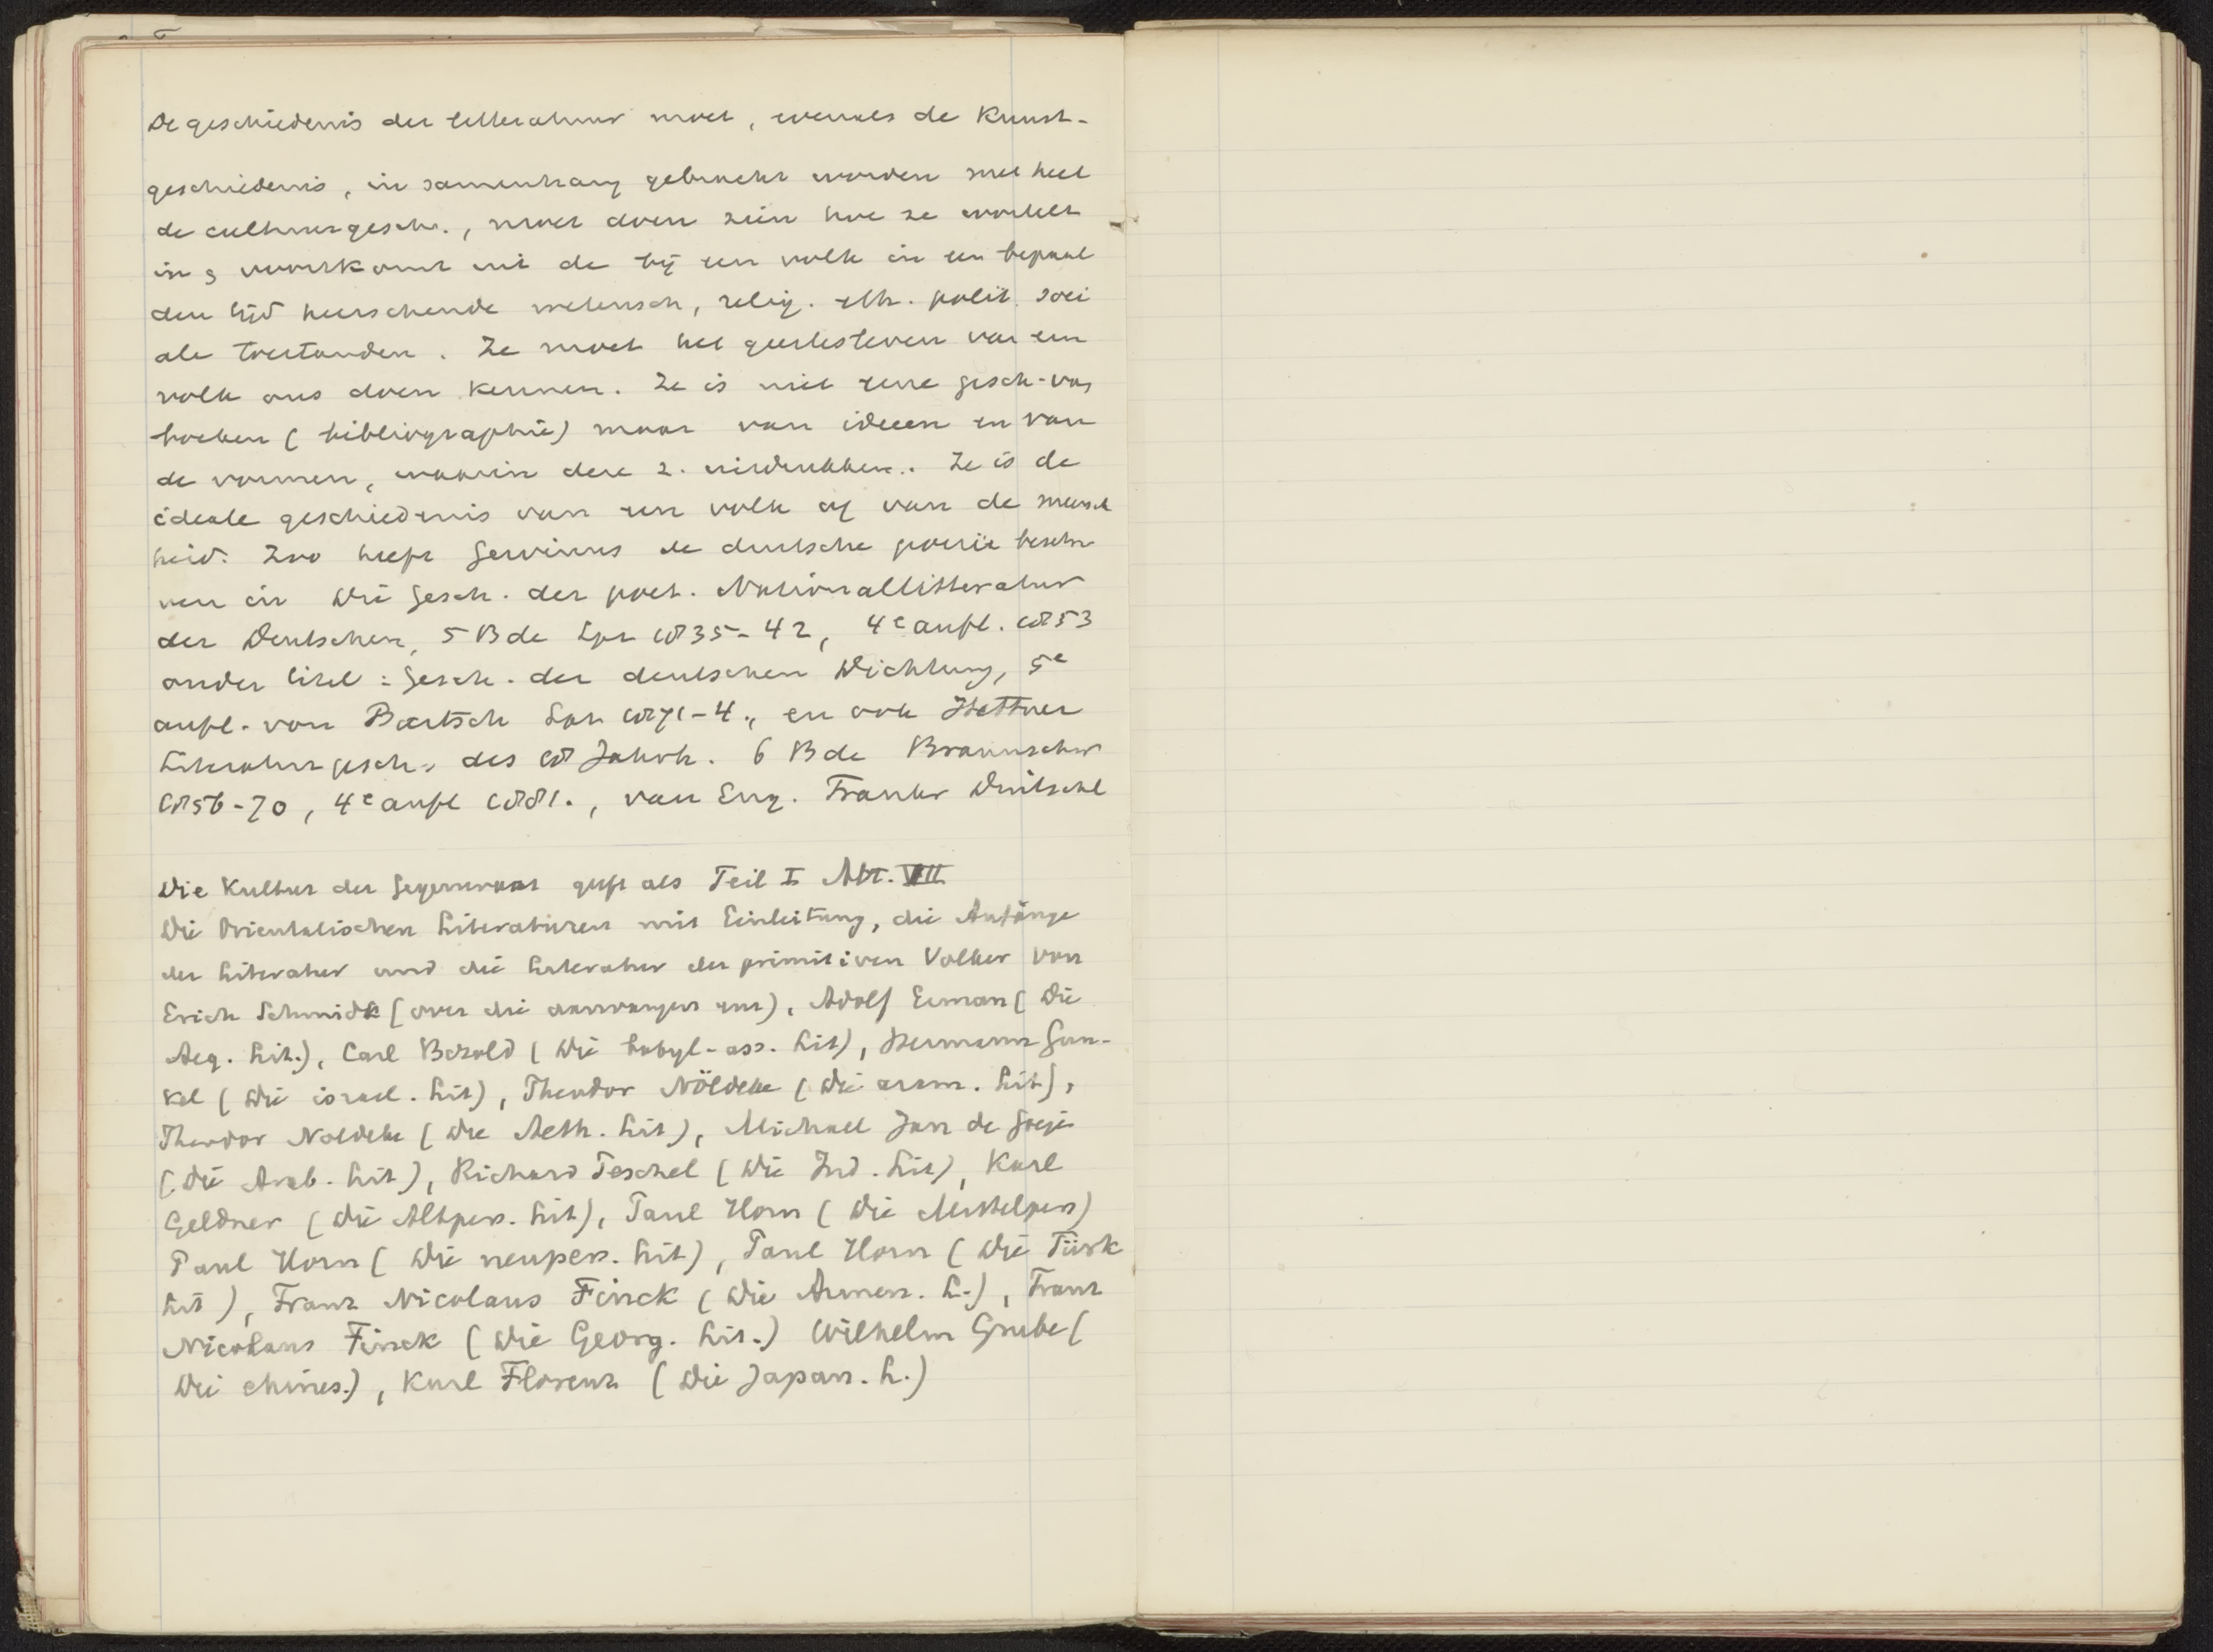 De geschiedenis der litteratuur moet, evenals de Kunst-
geschiedenis, in samenhang gebracht worden met heel
de cultuurgesch., moet doen zien hoe ze wortelt
in & voortkomt uit de bij een volk in een bepaal
den tijd heerschende wetensch, relig. eth. polit. soci
ale toestanden. Ze moet het geestesleven van een
volk ons doen kennen. Ze is niet eene gesch. van
boeken (bibliographie) maar van ideeen en van
de vormen, waarin deze z. uitdrukken. Ze is de
ideale geschiedenis van een volk of van de mensch
heid. Zoo heeft Gervinus de duitsche poezie beschr
ven in Die Gesch. der poet. Nationallitteratur
der Deutschen, 5 Bde Lpz 1835-42, 4e aufl. 1853
onder titel: Gesch. der deutschen Dichtung, 5e
aufl. von Bartsch Lpz 1871-4., en ook Hettner
Literaturgesch. des 18 Jahrh. 6 Bde Braunschw
1856-70, 4e aufl 1881., van Eng. Frankr Duitschl
Die Kultur der Gegenwart geeft als Teil I Abt. VII
Die Orientalischen Literaturen mit Einleitung, die Anfänge
der Literatur und die Literatur der primitiven Volker von
Erich Schmidt (over die aanvangen enz), Adolf Erman (Die
Aeg. Lit.), Carl Bezold (Die babyl-ass. Lit), Hermann Gun-
kel (Die israel. Lit), Theodor Nöldeke (Die aram. Lit),
Theodor Noldeke (Die Aeth. Lit), Michael Jan de Goeje
(Die Arab. Lit), Richard Peschel (Die Ind. Lit), Karl
Geldner (Die Altpers. Lit), Paul Horn (Die Mittelpers)
Paul Horn (Die neupers. Lit), Paul Horn (Die Türk
Lit), Franz Nicolaus Finck (Die Armen. L.), Franz
Nicolaus Finck (Die Georg. Lit.) Wilhelm Grube (
Die chines.), Karl Florenz (Die Japan. L.)